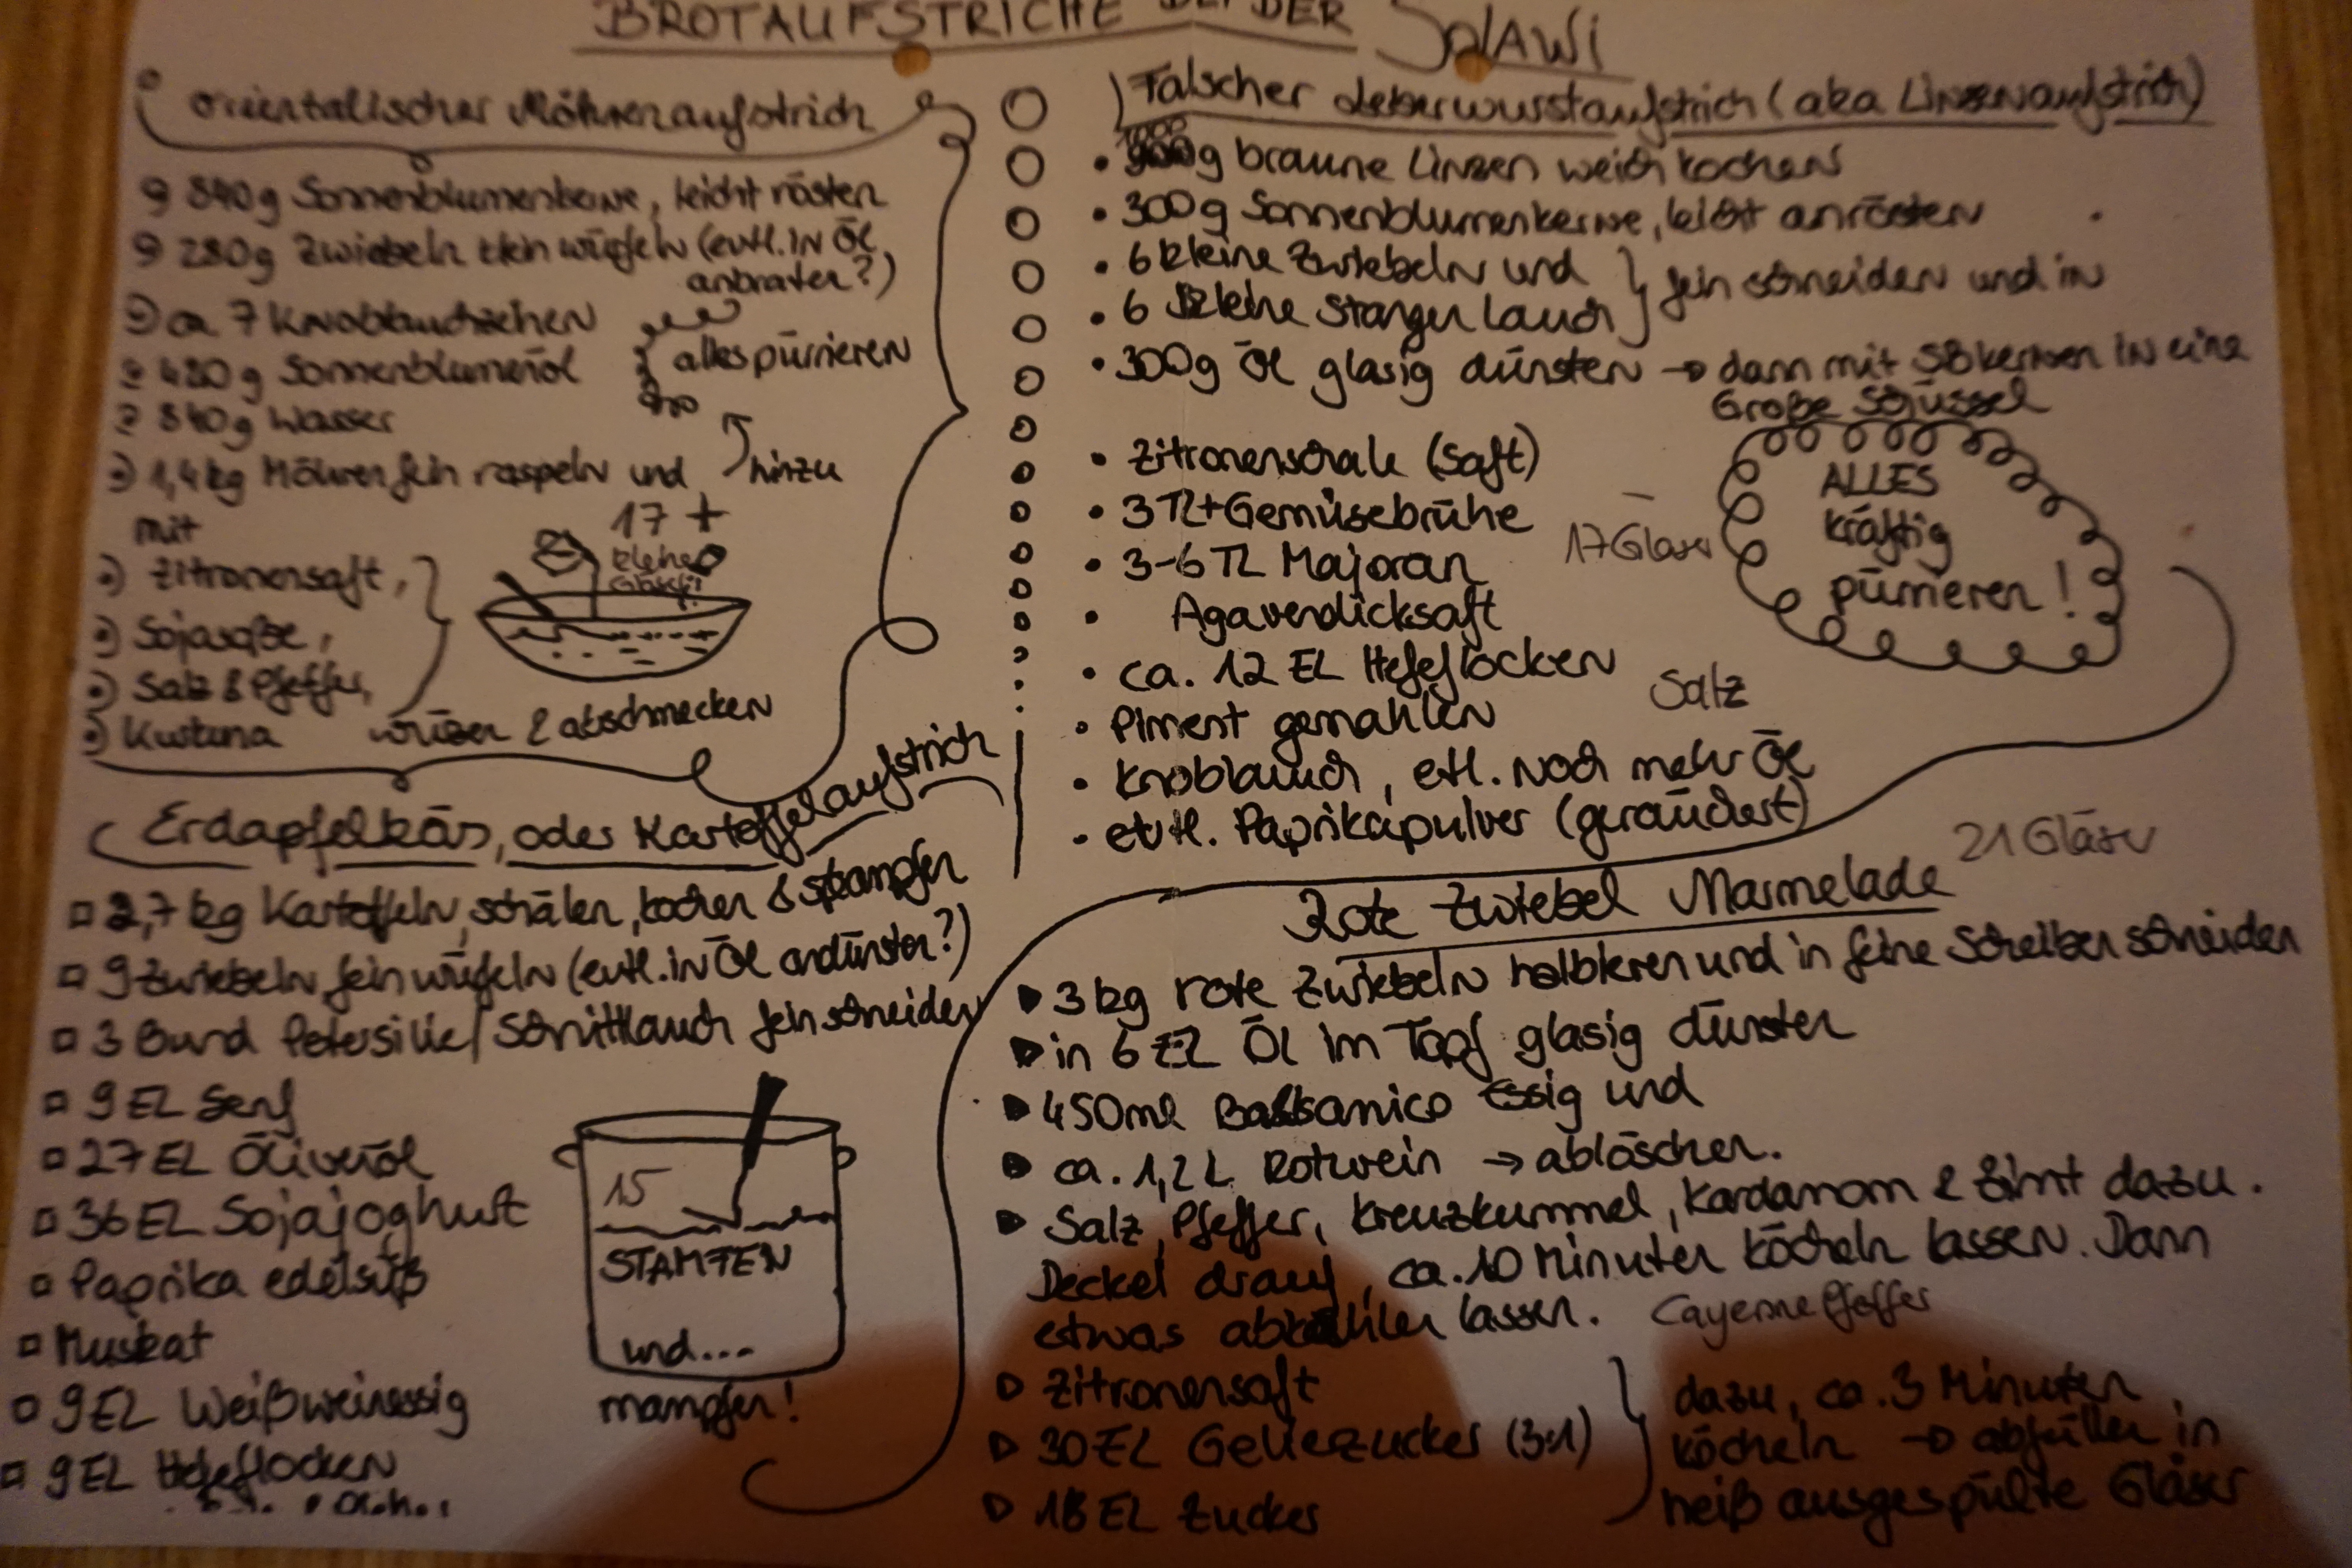 BROTAUFSTRICHE BEI DER SOLAWI
orientalischer Möhrenaufstrich
840g Sonnenblumenkerne, leicht rösten
280g Zwiebeln klein würfeln (evtl. in Öl
anbraten?)
ca 7 Knoblauchzehen
420g Sonnenblumenöl
alles pürrieren
840g Wasser
1,4 kg Möhren fein raspeln und
hinzu
mit
Zitronensaft,
Sojasoße,
Salz & Pfeffer,
Kurkuma
würzen & abschmecken
17 +
kleine
Erdapfelkäs, oder Kartoffelaufstrich
2,7 kg Kartoffeln, schälen, kochen & stampfen
9 Zwiebeln fein würfeln (evtl. in Öl andünsten?)
3 Bund Petersilie/Schnittlauch fein schneiden
9 EL Senf
27 EL Ölivenöl
36 EL Sojajoghurt
Paprika edelsüß
Muskat
9 EL Weißweinessig
9 EL Hefeflocken
15
STAMPFEN
und...
mampfen!
Falscher Leberwurstaufstrich (aka Linsenaufstrich)
1000
g braune Linsen weich kochen
300g Sonnenblumenkerne, leicht anrösten
6 kleine Zwiebeln und
6 kleine Stangen Lauch
fein schneiden und in
300g Öl glasig dünsten → dann mit SBkernen in eine
Große Schüssel
Zitronenschale (Saft)
3 TL+ Gemüsebrühe
3-6 TL Majoran
Agavendicksaft
ca. 12 EL Hefeflocken
Piment gemahlen
Knoblauch, etl. noch mehr Öl
evtl. Paprikapulver (geräuchert)
17 Gläser
Salz
ALLES
kräftig
pürrieren!
Rote Zwiebel Marmelade
21 Gläser
3 kg rote Zwiebeln halbieren und in feine Scheiben schneiden
in 6 EL Öl im Topf glasig dünsten
450ml Balsamico Essig und
ca. 1,2 L Rotwein → ablöschen.
Salz, Pfeffer, Kreuzkümmel, Kardamom & Zimt dazu.
Deckel drauf, ca. 10 Minuten köcheln lassen. Dann
etwas abkühlen lassen.
Cayenne Pfeffer
Zitronensaft
30 EL Gelierzucker (3:1)
18 EL Zucker
dazu, ca. 3 Minuten
köcheln → abfüllen in
heiß ausgespülte Gläser